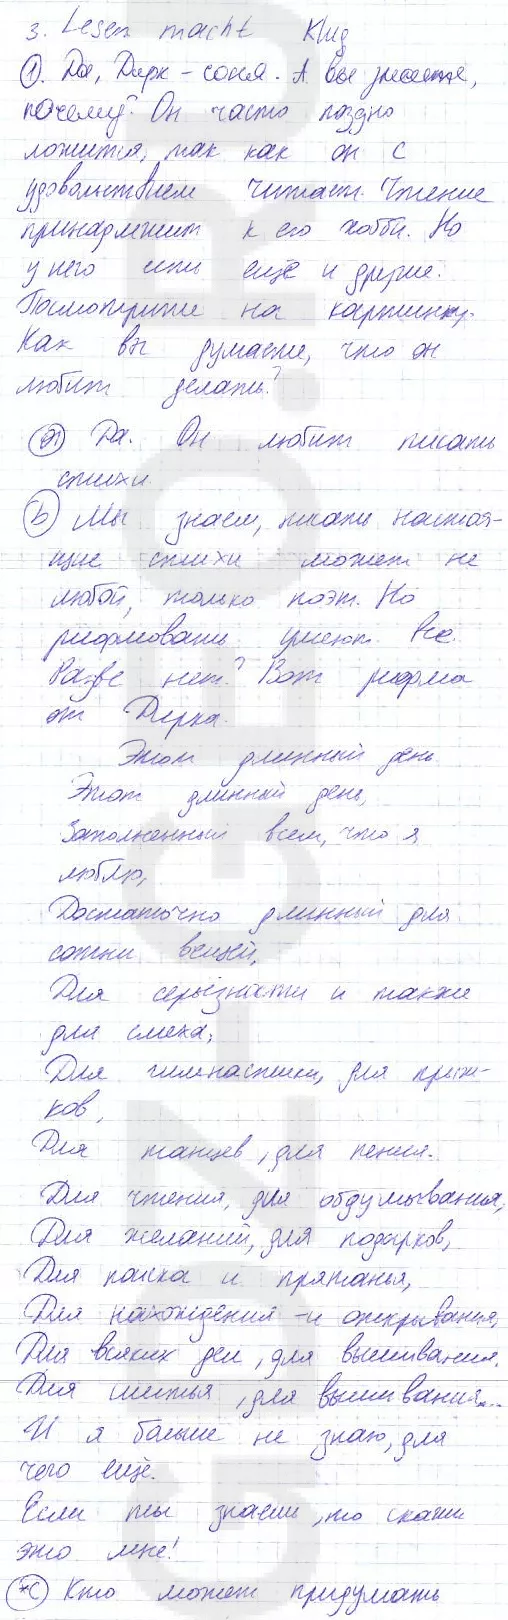 3. Lesen macht klug
1). Да, Дирк – соня. А вы знаете,
почему? Он часто поздно
ложится, так как он с
удовольствием читает. Чтение
принадлежит к его хобби. Но
у него есть ещё и другие.
Посмотрите на картинку.
Как вы думаете, что он
любит делать?
a) Да. Он любит писать
стихи.
b) Мы знаем, писать настоя-
щие стихи может не
любой, только поэт. Но
рифмовать умеют все.
Разве нет? Вот рифма
от Дирка.
Этот длинный день
Этот длинный день,
Заполненный всем, что я
люблю,
Достаточно длинный для
сотни вещей,
Для серьёзности и также
для смеха,
Для гимнастики, для прыж-
ков,
Для танцев, для пения.
Для чтения, для обдумывания,
Для желаний, для подарков,
Для поиска и прятанья,
Для нахождения и открывания,
Для всяких дел, для вышивания,
Для шитья, для вышивания...
И я больше не знаю, для
чего ещё.
Если ты знаешь, то скажи
это мне!
*c) Кто может придумать
GDZ-GEO.RU